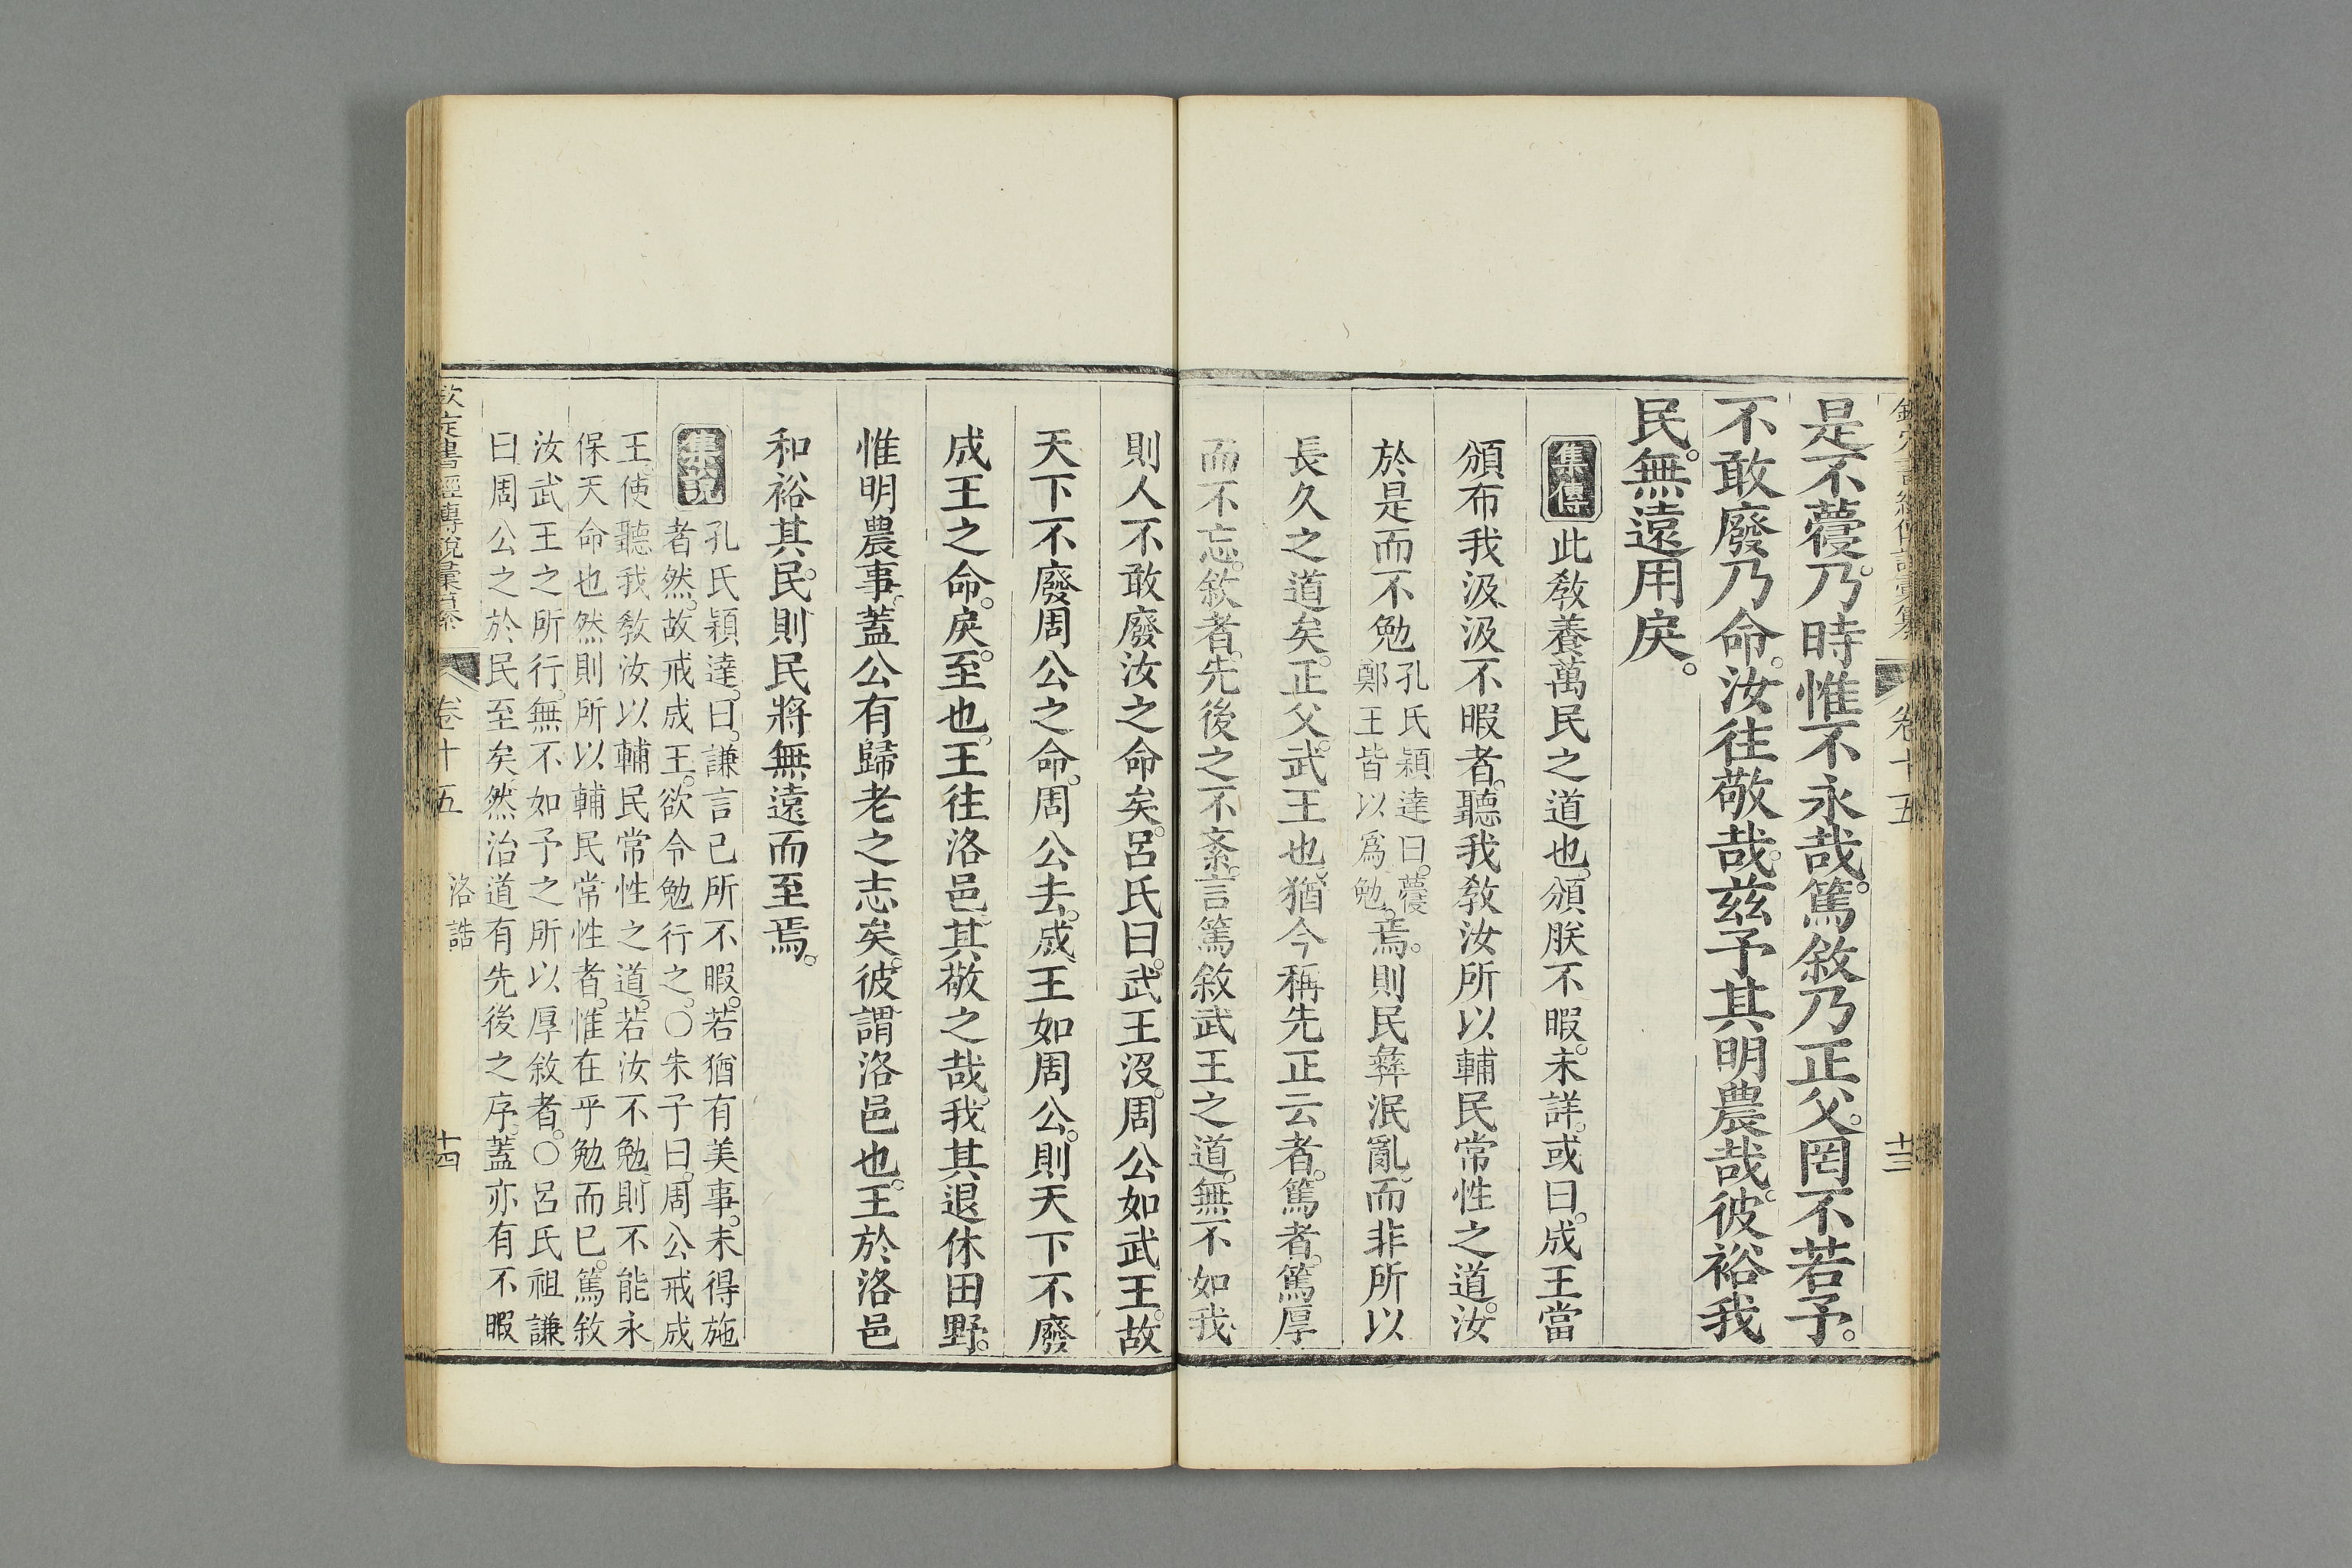 欽定書經傳說彙纂 卷十五 十三
是不蘉。乃時惟不永哉。篤敘乃正父。罔不若予。
不敢廢乃命。汝往敬哉。茲予其明農哉。彼裕我
民。無遠用戾。
集傳 此敎養萬民之道也。頒朕不暇。未詳。或曰。成王當
頒布我汲汲不暇者。聽我敎汝所以輔民常性之道。汝
於是而不勉孔氏穎達曰。蘉鄭王皆以爲勉。焉。則民彝泯亂。而非所以
長久之道矣。正父。武王也。猶今稱先正云者。篤者。篤厚
而不忘。敘者。先後之不紊。言篤敘武王之道。無不如我。
則人不敢廢汝之命矣。呂氏曰。武王沒。周公如武王。故
天下不廢周公之命。周公去。成王如周公。則天下不廢
成王之命。戾。至也。王往洛邑。其敬之哉。我其退休田野。
惟明農事。蓋公有歸老之志矣。彼。謂洛邑也。王於洛邑
和裕其民。則民將無遠而至焉。
集說 孔氏穎達。曰。謙言己所不暇。若猶有美事。未得施
者然。故戒成王。欲令勉行之。○朱子曰。周公戒成
王。使聽我敎汝以輔民常性之道。若汝不勉。則不能永
保天命也。然則所以輔民常性者。惟在乎勉而已。篤敘
汝武王之所行。無不如予之所以厚敘者。○呂氏祖謙
曰周公之於民至矣。然治道有先後之序。蓋亦有不暇
欽定書經傳說彙纂 卷十五 洛誥 十四